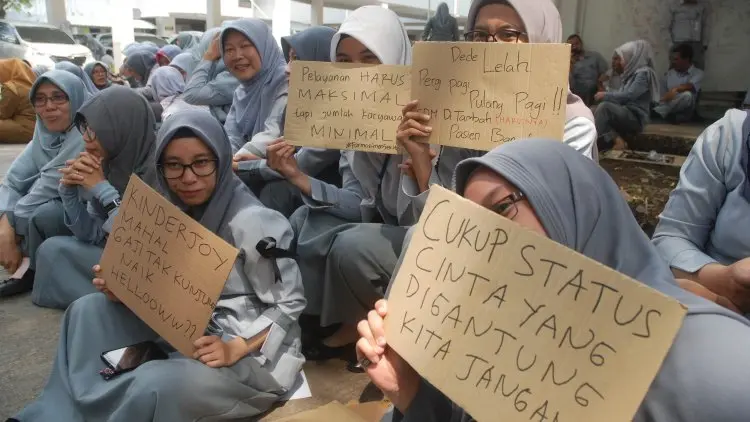 Pelayanan HARUS
MAKSIMAL
tapi jumlah Karyawan
MINIMAL
Dede Lelah
Pergi pagi
Pulang Pagi !!
SDM D.Tambah
Pasien
KINDERJOY
MAHAL
GAJI TAK KUNJUNG
NAIK
HELLOOWW??
CUKUP STATUS
CINTA YANG
DIGANTUNG
KITA JANGAN